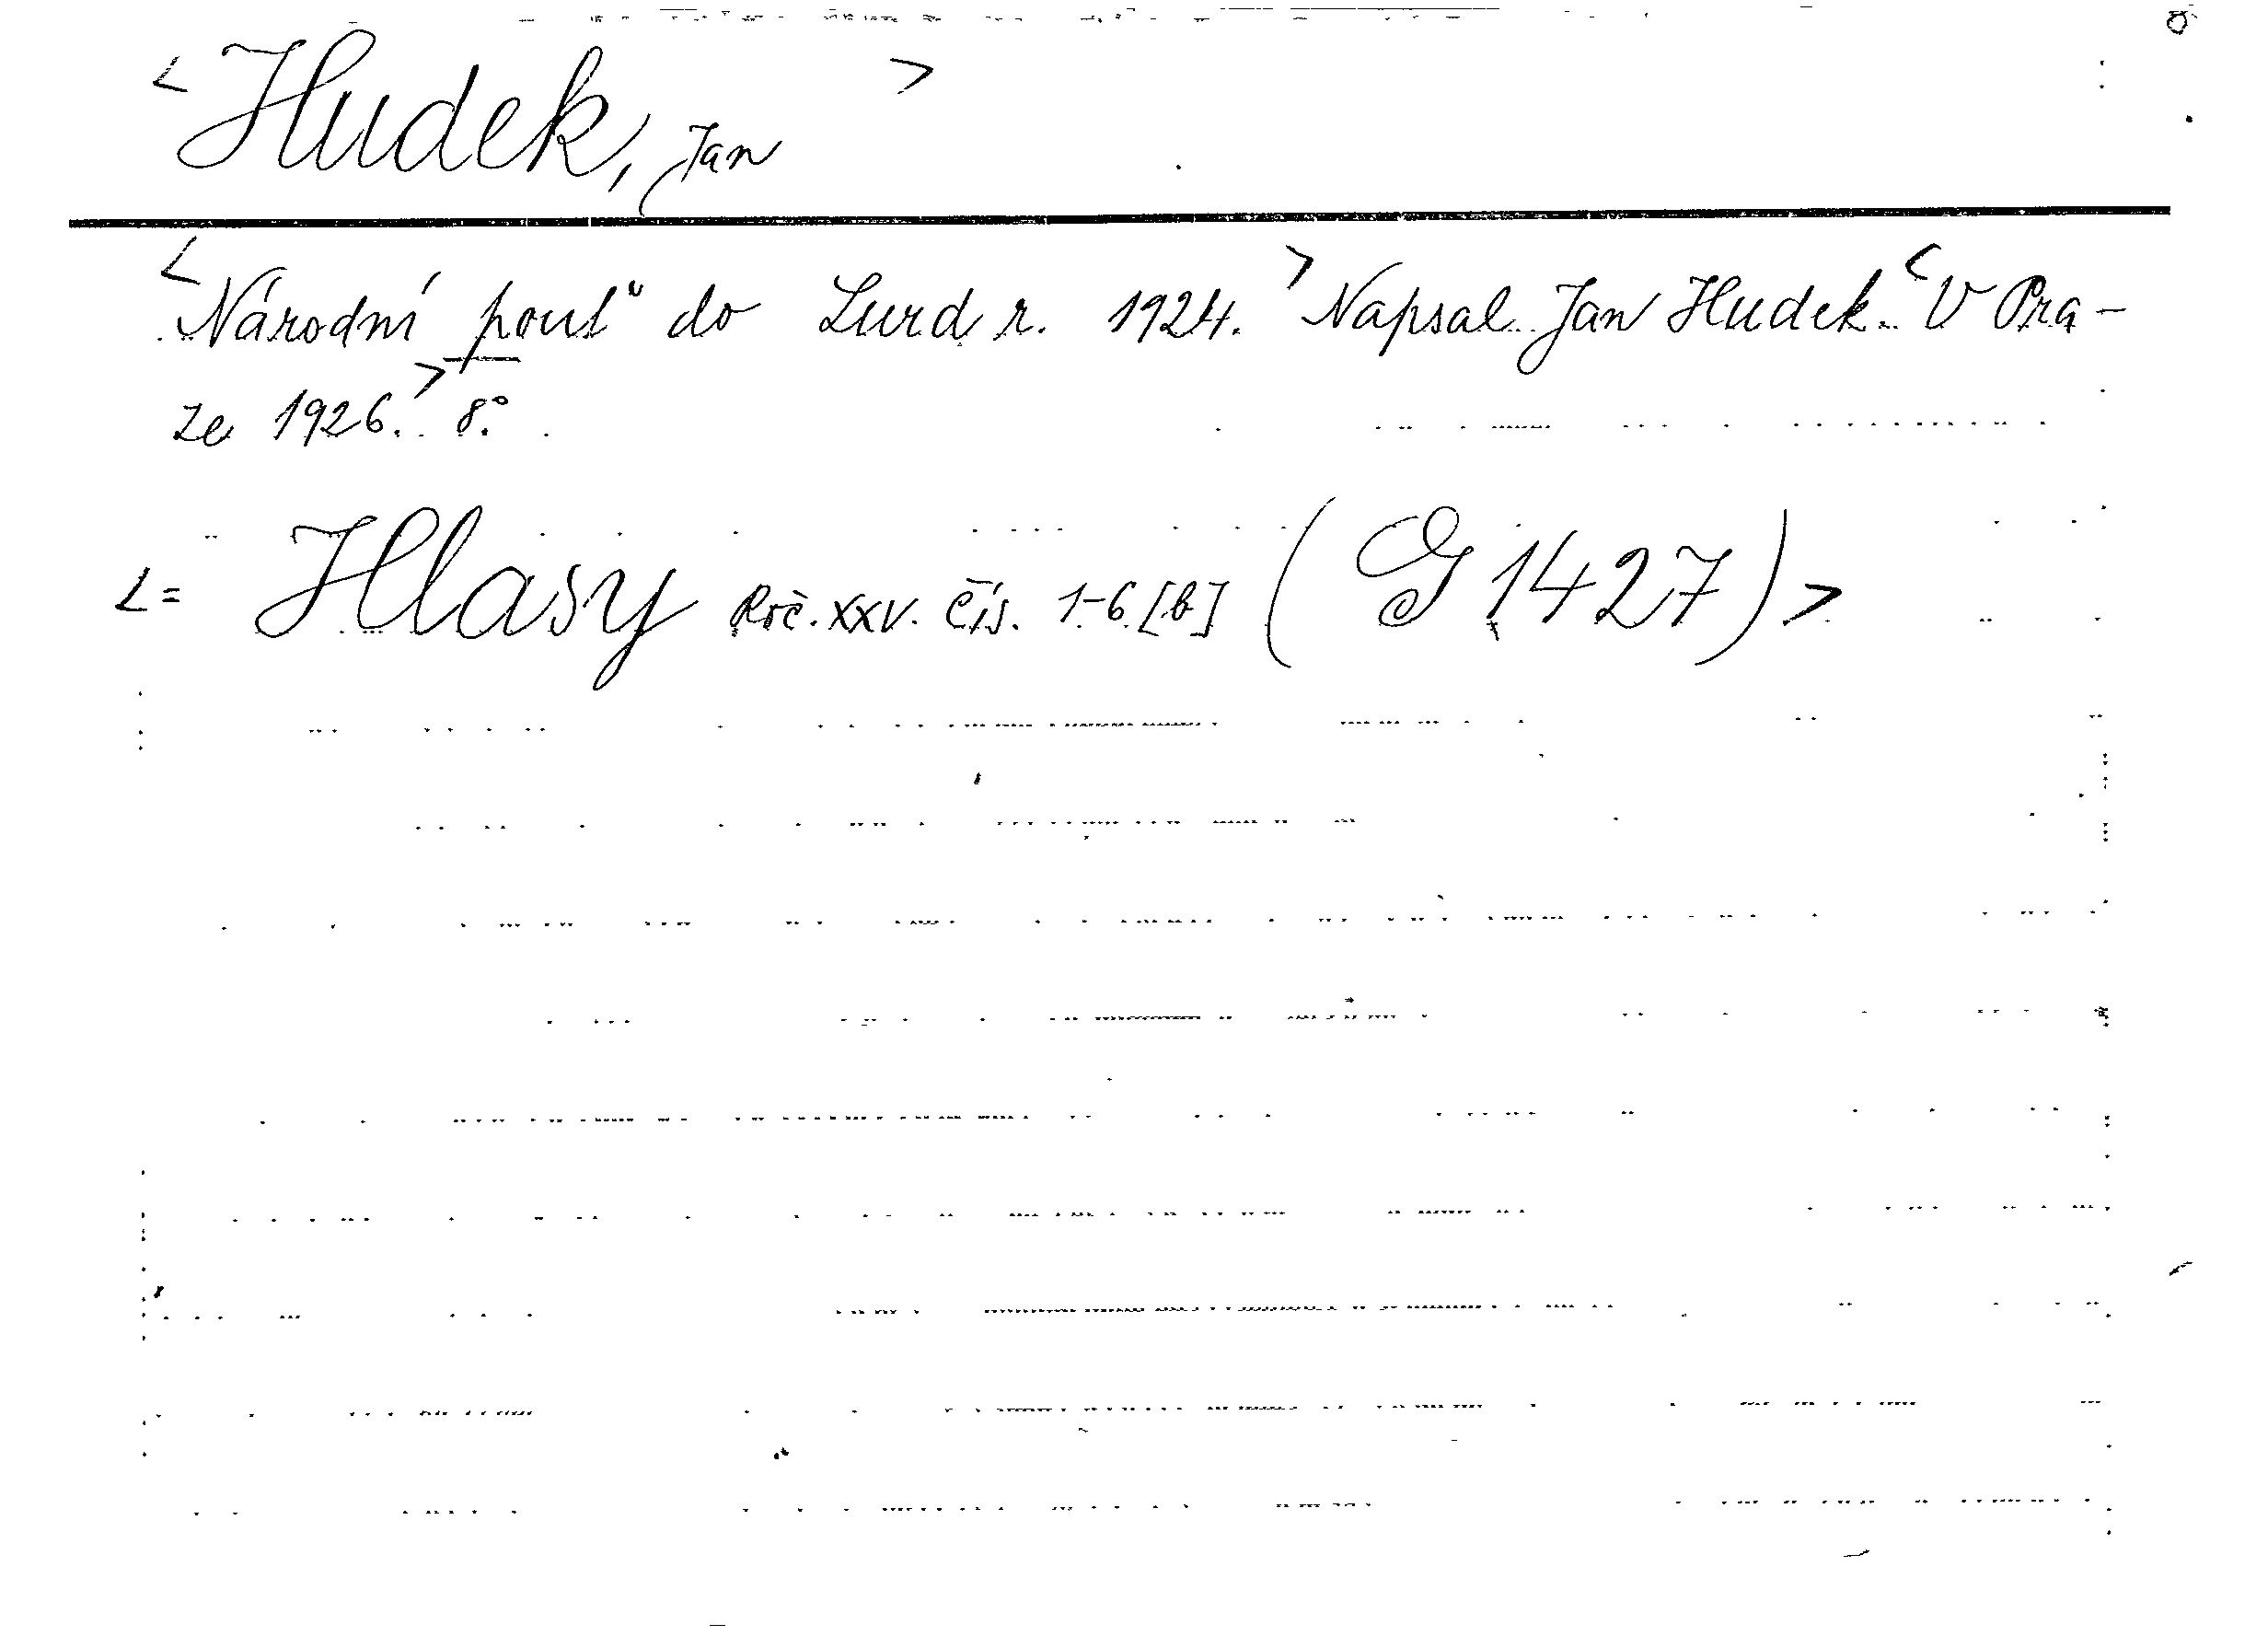 < Hudek, Jan >
< Národní pouť do Lurd r. 1924. > Napsal Jan Hudek. < V Pra-
ze 1926. > 8.°
< = Hlasy Roč. XXV. čís. 1-6 [b] (G 1427) >